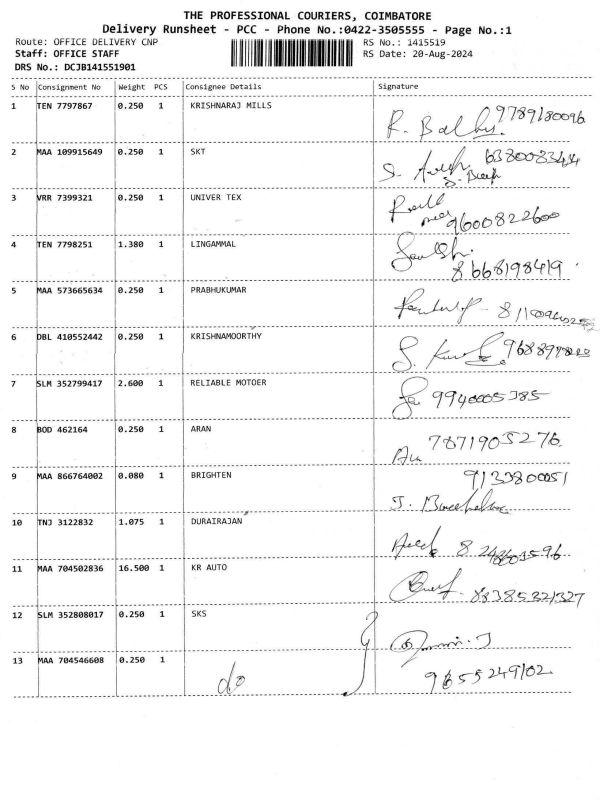 THE PROFESSIONAL COURIERS, COIMBATORE
Delivery Runsheet - PCC - Phone No.:0422-3505555 - Page No.:1
Route: OFFICE DELIVERY CNP RS No.: 1415519
Staff: OFFICE STAFF RS Date: 20-Aug-2024
DRS No.: DCJB141551901
S No Consignment No Weight PCS Consignee Details Signature
1 TEN 7797867 0.250 1 KRISHNARAJ MILLS 9789180096
R. Balby.
2 MAA 109915649 0.250 1 SKT
3 VRR 7399321 0.250 1 UNIVER TEX
9600822600
4 TEN 7798251 1.380 1 LINGAMMAL
8668198419
5 MAA 573665634 0.250 1 PRABHUKUMAR
6 DBL 410552442 0.250 1 KRISHNAMOORTHY
7 SLM 352799417 2.600 1 RELIABLE MOTOER 9940005385
8 BOD 462164 0.250 1 ARAN 7871905276
9 MAA 866764002 0.080 1 BRIGHTEN
10 TNJ 3122832 1.075 1 DURAIRAJAN
11 MAA 704502836 16.500 1 KR AUTO
12 SLM 352808017 0.250 1 SKS
13 MAA 704546608 0.250 1 do 9655249102